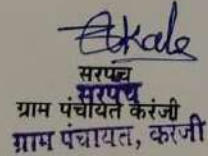 सरपंच
सरपंच
ग्राम पंचायत करंजी
ग्राम पंचायत, करंजी